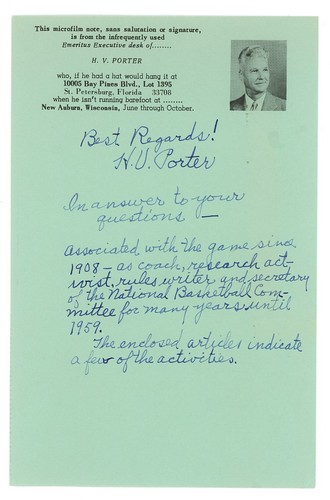 This microfilm note, sans salutation or signature,
is from the infrequently used
Emeritus Executive desk of........
H. V. PORTER
who, if he had a hat would hang it at
10005 Bay Pines Blvd., Lot 1895
St. Petersburg, Florida 33708
when he isn't running barefoot at ........
New Auburn, Wisconsin, June through October.
Best Regards!
H.V. Porter
In answer to your
questions —
Associated with the game since
1908 — as coach, research act-
ivist, rules writer and secretary
of the National Basketball Com-
mittee for many years until
1959.
The enclosed articles indicate
a few of the activities.